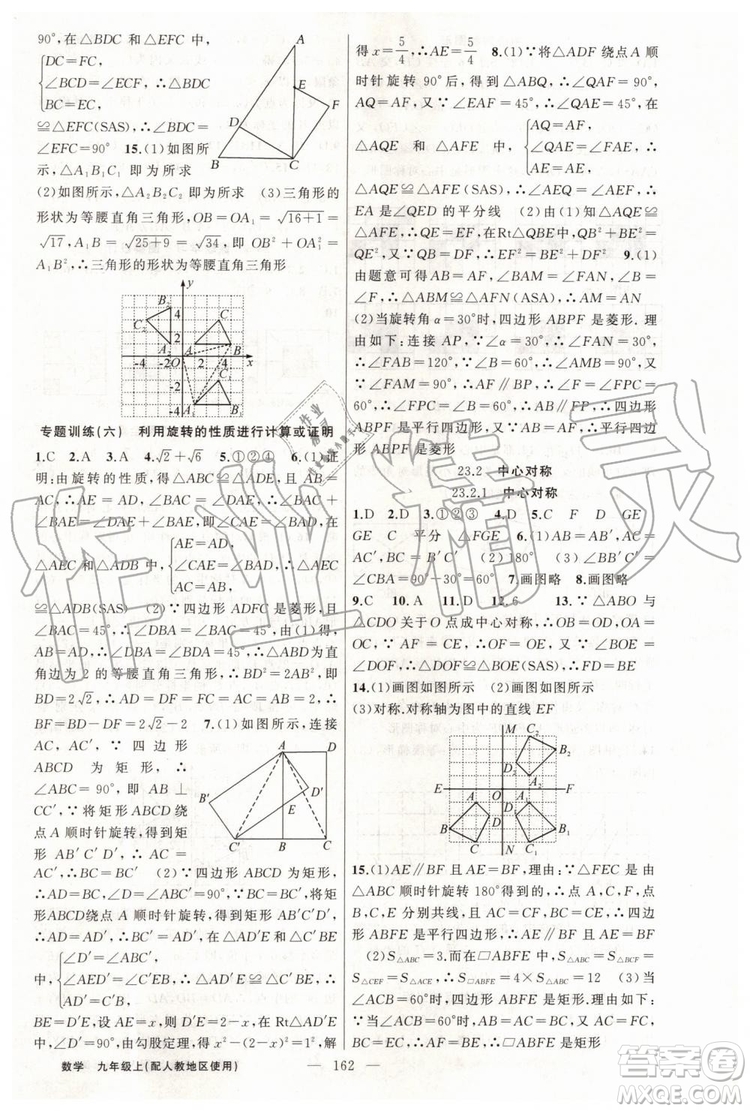 90°,在△BDC 和△EFC 中,
DC=FC,
∠BCD=∠ECF,
BC=EC,
≌△EFC(SAS),∴∠BDC=
∠EFC=90° 15.(1)如图所
示,△A₁B₁C₁ 即为所求
(2)如图所示,△A₂B₂C₂ 即为所求 (3)三角形的
形状为等腰直角三角形,OB=OA₁=√16+1=
√17,A₁B=√25+9=√34,即 OB²+OA₁²=
A₁B²,∴三角形的形状为等腰直角三角形
专题训练(六) 利用旋转的性质进行计算或证明
1.C 2.A 3.A 4.√2+√6 5.①②④ 6.(1)证
明:由旋转的性质,得△ABC≌△ADE,∵AB=
AC,∴AE=AD,AC=AB,∠BAC=∠DAE,∴
∠BAC+∠BAE=∠DAE+∠BAE,即∠CAE=
∠DAB,在
△AEC 和△ADB 中,
AE=AD,
∠CAE=∠DAB,
AC=AB,
∴△AEC
≌△ADB(SAS) (2)∵四边形 ADFC 是菱形,且
∠BAC=45°,∴∠DBA=∠BAC=45°,由(1)得
AB=AD,∴∠DBA=∠BDA=45°,∴△ABD 为直
角边为 2 的等腰直角三角形,∴BD²=2AB²,即
BD=2√2,∴AD=DF=FC=AC=AB=2,∴
BF=BD-DF=2√2-2 7.(1)如图所示,连接
AC,AC′,∵四边形
ABCD 为矩形,∴
∠ABC=90°,即 AB⊥
CC′,∵将矩形 ABCD
绕点 A 顺时针旋转,得
到矩形 AB′C′D′,∴
AC=AC′,∴BC=BC′ (2)∵四边形 ABCD 为矩形,
∴AD=BC,∠D=∠ABC′=90°,∵将矩形
ABCD绕点 A 顺时针旋转,得到矩形AB′C′D′,∴
AD=AD′,∴BC′=AD′,在△AD′E 与△C′BE
中,
∠D′=∠ABC′,
∠AED′=∠C′EB,
AD′=BC′,
∴△AD′E≌△C′BE,∴
BE=D′E,设 AE=x,则 D′E=2-x,在 Rt△AD′E
中,∠D′=90°,由勾股定理,得 x²-(2-x)²=1,解
得 x=5/4,∴AE=5/4 8.(1)∵将△ADF 绕点 A 顺
时针旋转 90°后,得到△ABQ,∴∠QAF=90°,
AQ=AF,又∵∠EAF=45°,∴∠QAE=45°,在
△AQE 和△AFE 中,
AQ=AF,
∠QAE=∠FAE,
AE=AE,
∴
△AQE≌△AFE(SAS),∴∠AEQ=∠AEF,∴
EA 是∠QED 的平分线 (2)由(1)知△AQE≌
△AFE,∴QE=EF,在Rt△QBE中,QB²+BE²=
QE²,又∵QB=DF,∴EF²=BE²+DF² 9.(1)
由题意可得 AB=AF,∠BAM=∠FAN,∠B=
∠F=60°,∴△ABM≌△AFN(ASA),∴AM=AN
(2)当旋转角 α=30°时,四边形 ABPF 是菱形.理
由如下:连接 AP,∵∠α=30°,∴∠FAN=30°,
∴∠FAB=120°,∵∠B=60°,∴∠AMB=90°,又
∵∠FAN=30°,∠F=60°,∴∠ANF=90°,∴
四边形 ABPF 是平行四边形,又∵AB=AF,∴
四边形 ABPF 是菱形
23.2 中心对称
23.2.1 中心对称
1.D 2.D 3.①②③ 4.D 5.C F D GE
GE C 平分 △FGE 6.(1)∠BAC=
AC′,AB=AC,BC=B′C′ (2)180° (3)∠BB′C′=
∠CBA=90°-30°=60° 7.画图略 8.画图略
9.C 10.A 11.D 12.6 13.∵△ABO 与
△CDO 关于 O 点成中心对称,∴OB=OD,OA=
OC,∵AF=CE,∴OF=OE,在△DOF 和△BOE
∠DOF=∠BOE,
△DOF≌△BOE(SAS),∴FD=BE
14.(1)画图如图所示 (2)画图如图所示
(3)对称.对称轴为图中的直线 EF
15.(1)AE∥BF 且 AE=BF 理由:∵△FEC 是由
△ABC 顺时针旋转 180°得到的,∴A,C,F 和
B,C,E 分别共线,∴AC=CF,BC=CE,∴四边
形 ABFE 是平行四边形,∴AE∥BF 且 AE=BF
(2)∵S△ABC=3,而在▱ABFE 中,S△ABC=S△BCF=
S△CEF=S△ACE,∴S▱ABFE=4×S△ABC=12 (3)当
∠ACB=60°时,四边形 ABFE 是矩形.理由:当
∠ACB=60°时,∵AB=AC,∴AC=BC,∴AF=
BE,∵四边形 ABFE 是平行四边形,∴四边形
ABFE 是矩形
数学 九年级上(配人教地区使用)
— 162 —
作业精灵